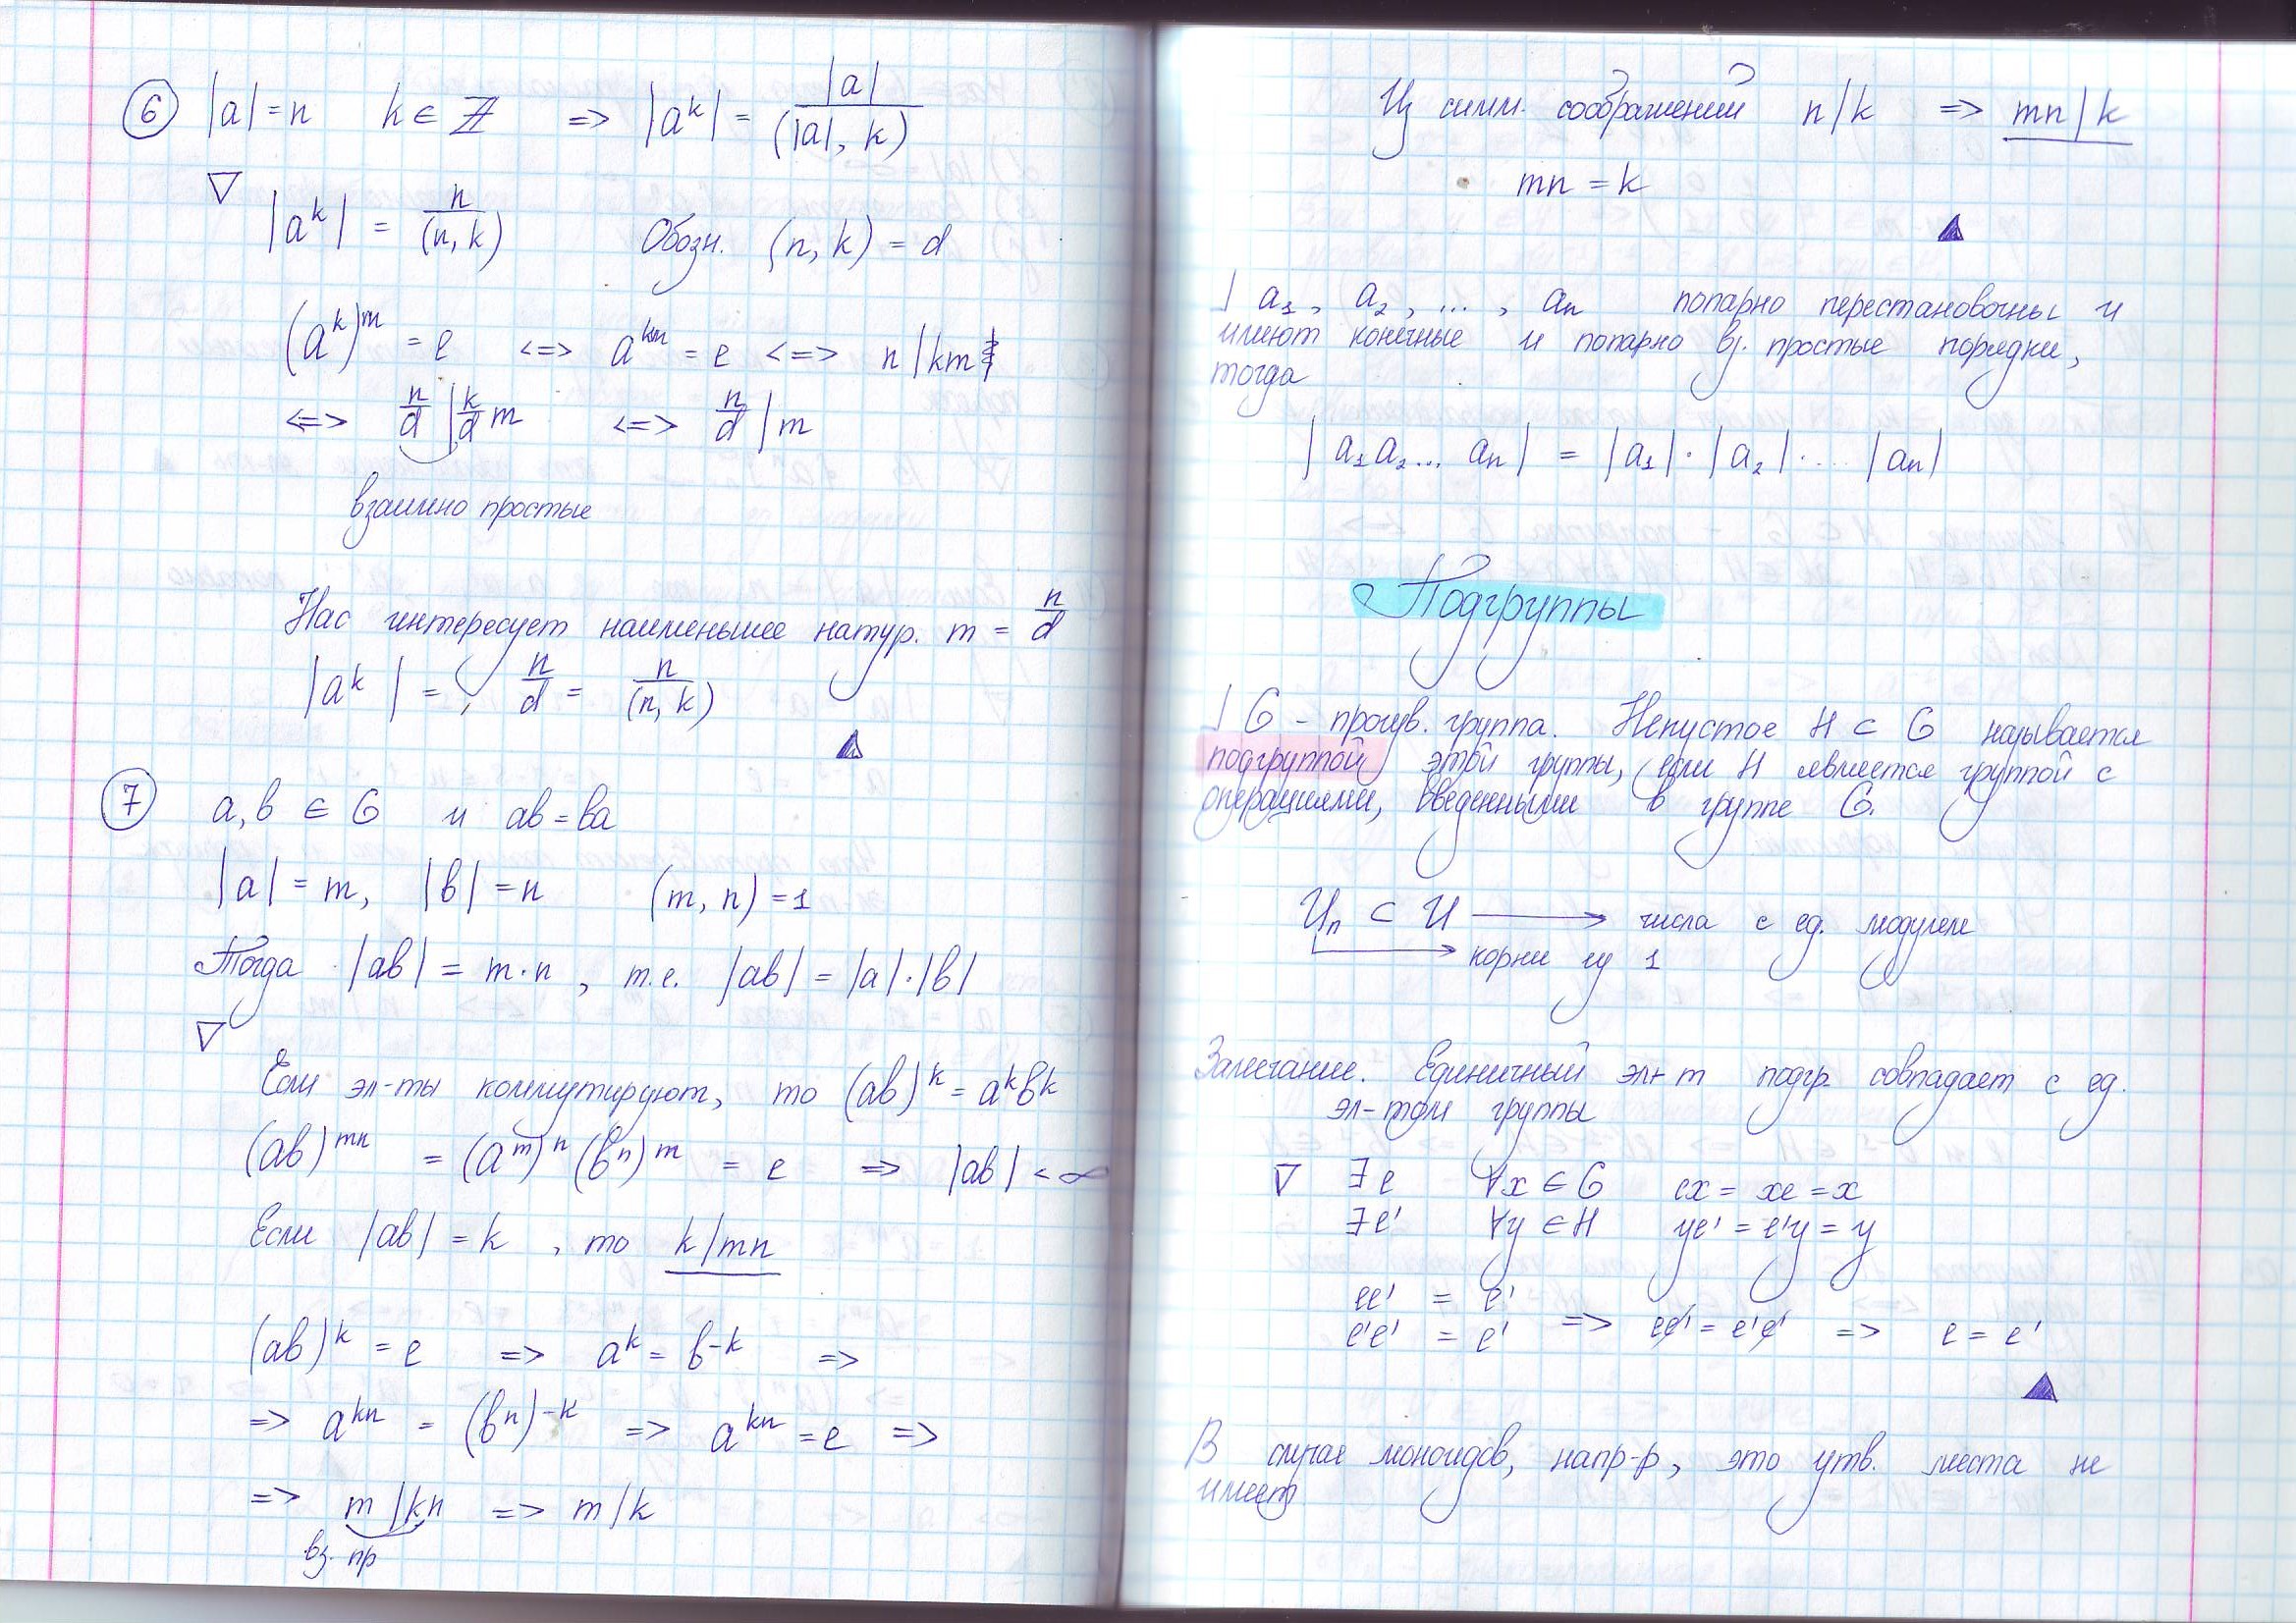 ⑥ |a| = n k ∈ ℤ => |a^k| = |a| / (|a|, k)
∇
|a^k| = n / (n, k) Обозн. (n, k) = d
(a^k)^m = e <=> a^{km} = e <=> n | km
<=> n/d | k/d m <=> n/d | m
взаимно простые
Нас интересует наименьшее натур. m = n/d
|a^k| = n/d = n / (n, k)
▲
⑦ a, b ∈ G и ab = ba
|a| = m, |b| = n (m, n) = 1
Тогда |ab| = m·n, т.е. |ab| = |a|·|b|
∇
Если эл-ты коммутируют, то (ab)^k = a^k b^k
(ab)^{mn} = (a^m)^n (b^n)^m = e => |ab| < ∞
Если |ab| = k, то k | mn
(ab)^k = e => a^k = b^{-k} =>
=> a^{kn} = (b^n)^{-k} => a^{kn} = e =>
=> m | kn => m | k
вз. пр
Из симм. соображений n | k => mn | k
mn = k
▲
] a₁, a₂, ..., aₙ попарно перестановочны и
имеют конечные и попарно вз. простые порядки,
тогда
|a₁ a₂ ... aₙ| = |a₁| · |a₂| · ... |aₙ|
Подгруппы
] G - произв. группа. Непустое H ⊂ G называется
подгруппой этой группы, если H является группой с
операциями, введенными в группе G.
Uₙ ⊂ U → числа с ед. модулем
→ корни из 1
Замечание. Единичный эл-т подгр. совпадает с ед.
эл-том группы
∇ ∃ e ∀x ∈ G ex = xe = x
∃ e' ∀y ∈ H ye' = e'y = y
ee' = e'
e'e' = e' => ee' = e'e' => e = e'
▲
В случае моноидов, напр-р, это утв. места не
имеет